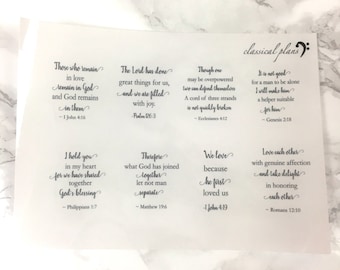 classical plans
Those who remain
in love
remain in God
and God remains
in them
~ I John 4:16
The Lord has done
great things for us,
and we are filled
with joy.
Psalm 126:3
Though one
may be overpowered
two can defend themselves
A cord of three strands
is not quickly broken
~ Ecclesiastes 4:12
It is not good
for a man to be alone
I will make him
a helper suitable
for him
~ Genesis 2:18
I hold you
in my heart
for we have shared
together
God's blessing
~ Philippians 1:7
Therefore
what God has joined
together
let not man
separate
~ Matthew 19:6
We love
because
he first
loved us
I John 4:19
Love each other
with genuine affection
and take delight
in honoring
each other
~ Romans 12:10